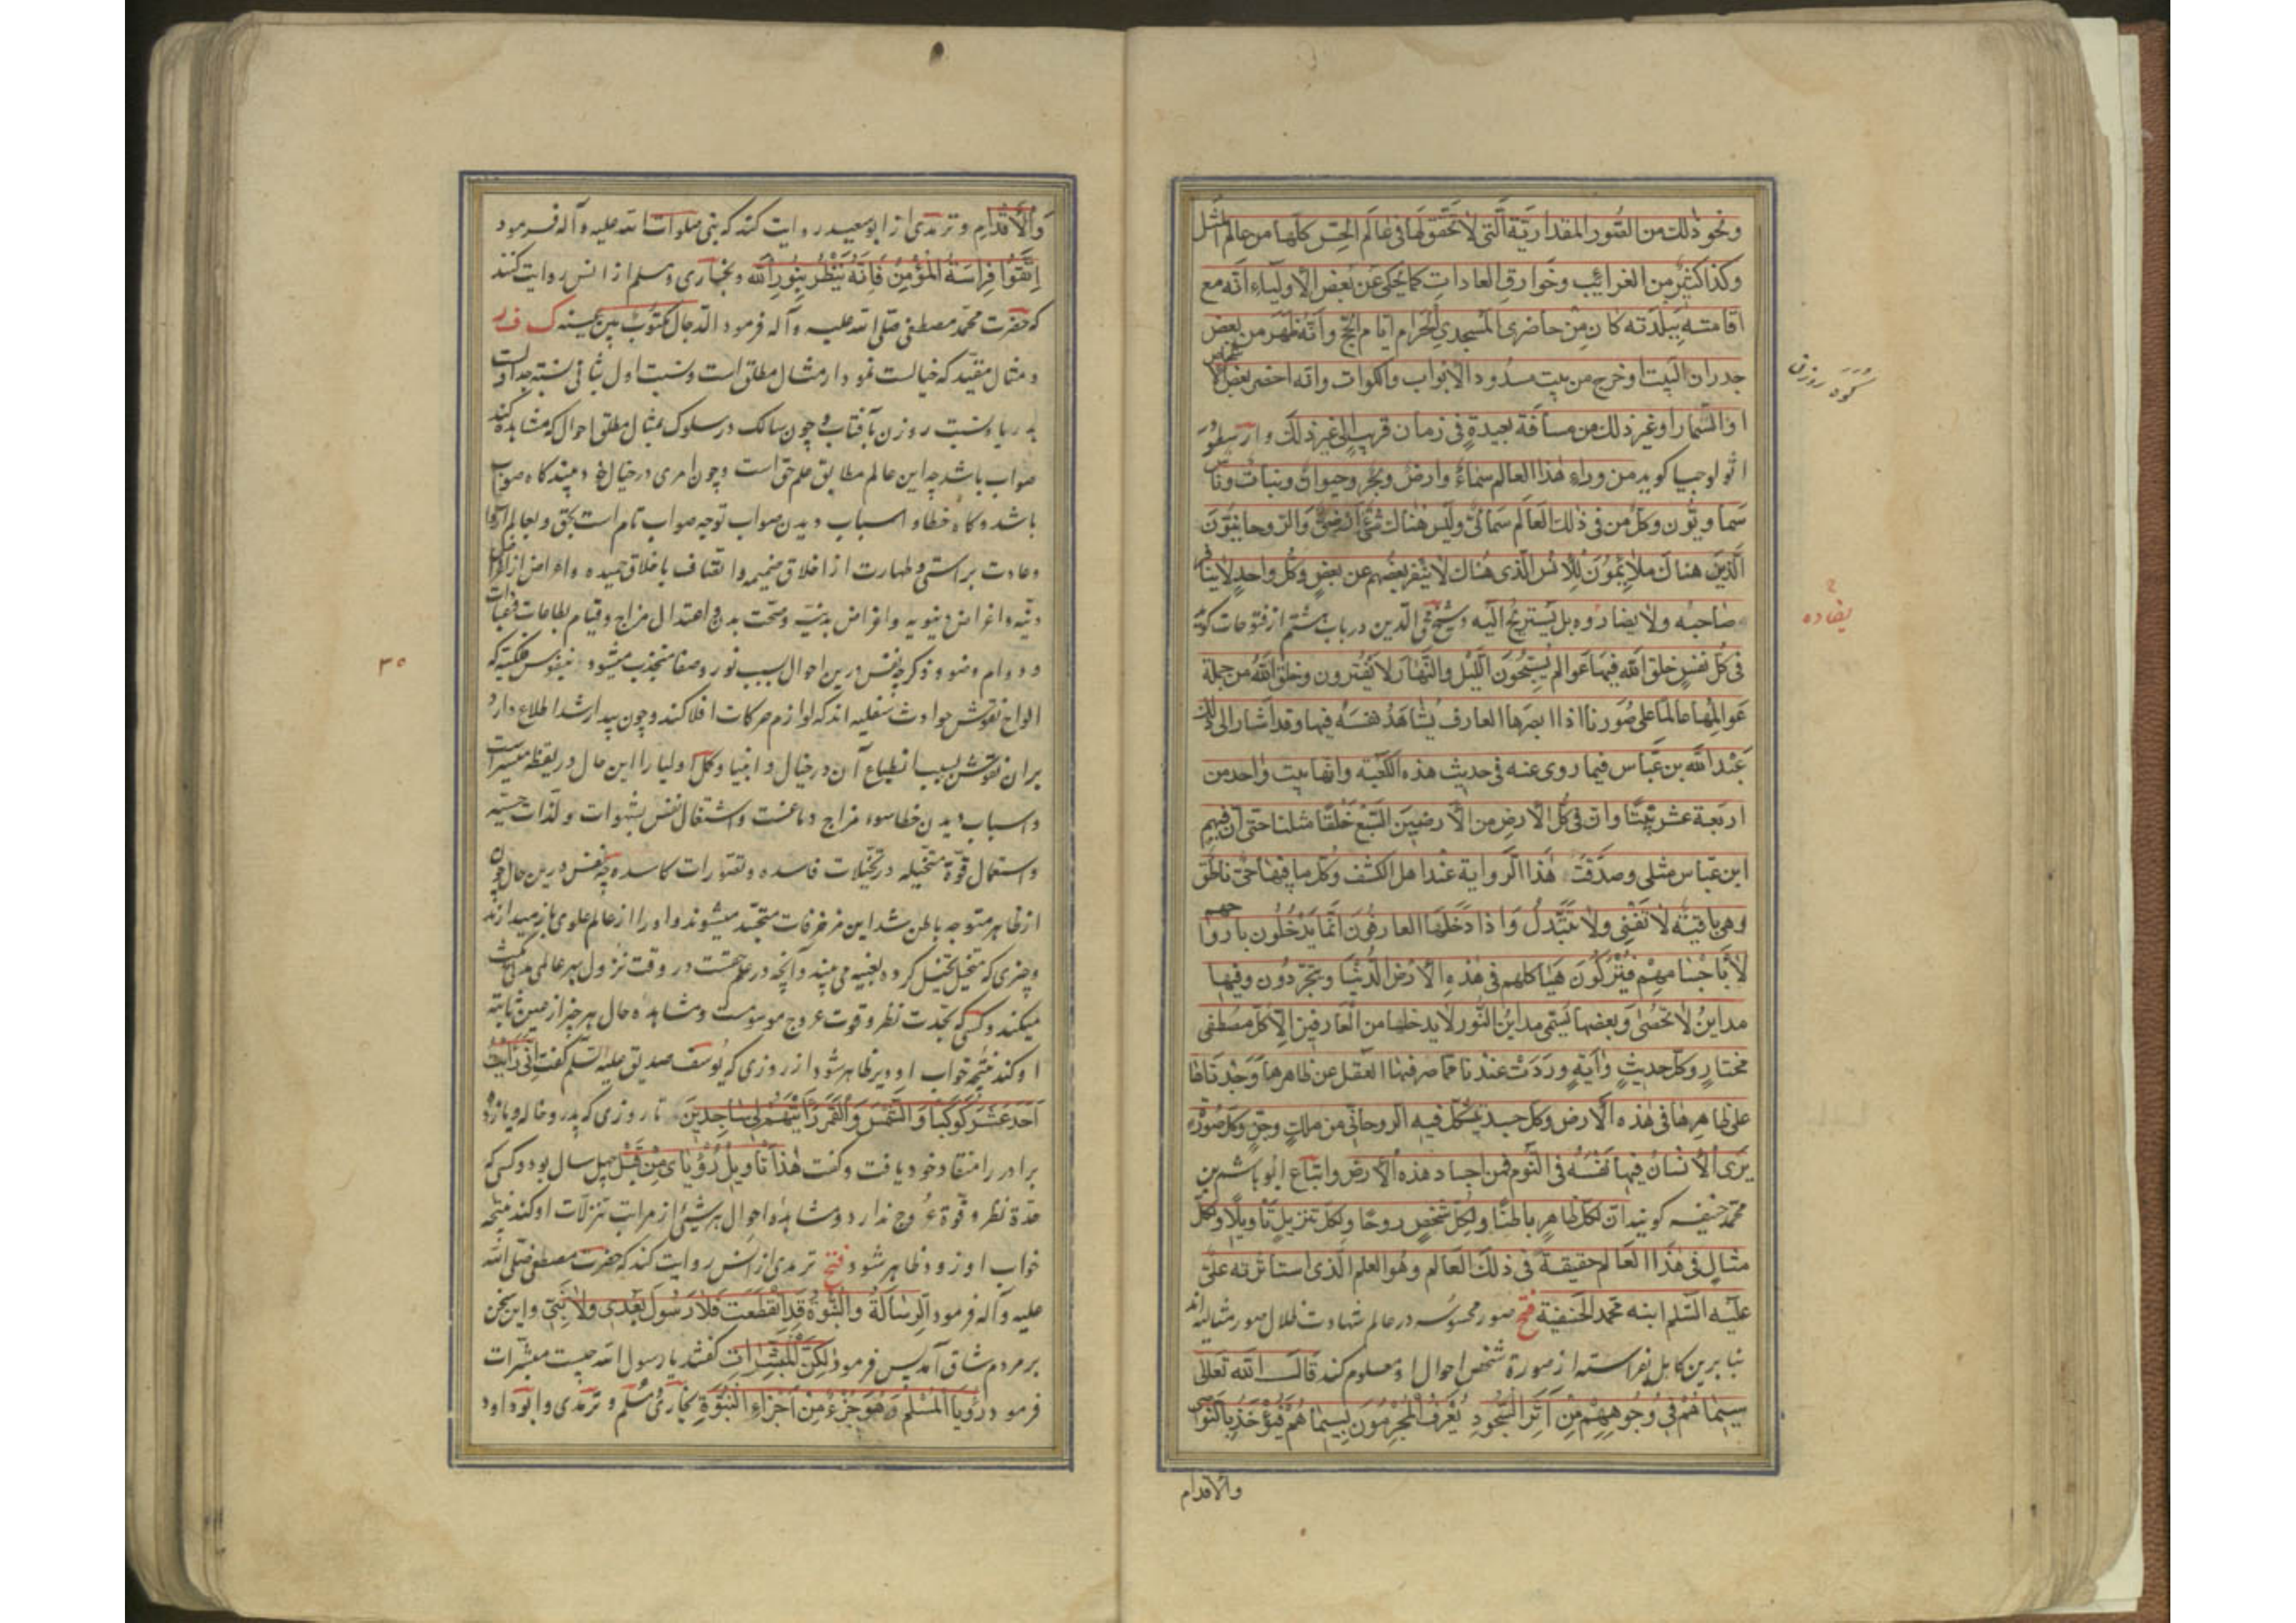 ونحو ذلك من الصور المقدارية التی لا تحقق لها فی عالم الحس كلها من عالم المثل
وكذا كثير من الغرائب وخوارق العادات كما يحكی عن بعض الاولياء انه مع
اقامته ببلدته كان من حاضری المسجد الحرام ايام الحج وانه ظهر من بعض
جدران البيت او خرج من بيت مسدود الابواب والكوات وانه احضر بعض الاشخاص
او الثمار او غير ذلك من مسافة بعيدة فی زمان قريب الی غير ذلك و ارسطو در
اثولوجيا کوید من وراء هذا العالم سماء وارض وبحر وحيوان ونبات وناس
سماويون وكل من فی ذلك العالم سمائی وليس هناك شیء ارضی والروحانيون
الذين هناك ملائمون للانس الذی هناك لا ينفر بعضهم عن بعض وكل واحد لا ينافر
صاحبه ولا يضاده بل يستريح اليه و شیخ محی الدین در باب هشتم از فتوحات کوید
فی كل نفس خلق الله فيها عوالم يسبحون الليل والنهار لا يفترون وخلق الله من جملة
عوالمها عالما علی صورنا اذا ابصرها العارف يشاهد نفسه فيها وقد اشار الی ذلك
عبد الله بن عباس فيما روی عنه فی حديث هذه الكعبة وانها بيت واحد من
اربعة عشر بيتا وان فی كل الارض من الارضين السبع خلقا مثلنا حتی ان فيهم
ابن عباس مثلی وصدقت هذا الرواية عند اهل الكشف وكل ما فيها حی ناطق
وهی باقية لا تفنی ولا تتبدل واذا دخلها العارفون انما يدخلون بارواحهم
لا باجسامهم فيتركون هياكلهم فی هذه الارض الدنيا ويتجردون وفيها
مداين لا تحصی وبعضها يسمی مداين النور لا يدخلها من العارفين الا كل مصطفی
مختار وكل حديث وآية وردت عندنا مما صرفها العقل عن ظاهرها وجدناها
علی ظاهرها فی هذه الارض وكل جسد يتشكل فيه الروحانی من ملك وجن وكل صورة
يری الانسان فيها نفسه فی النوم فمن اجساد هذه الارض واتباع ابو هاشم بن
محمد حنفیه کویند ان لكل ظاهر باطنا ولكل شخص روحا ولكل تنزيل تأويلا ولكل
مثال فی هذا العالم حقيقة فی ذلك العالم وهو العلم الذی استأثر به علی
عليه السلم ابنه محمد الحنفية فتح صور محسوسه در عالم شهادت ظلال صور مثالیه اند
بنا برین کامل بفراست از صورة شخص احوال او معلوم کند قال الله تعالی
سيماهم فی وجوههم من اثر السجود يعرف المجرمون بسيماهم فيؤخذ بالنواصی
والاقدام
کوه روزن
يضاده
والاقدام و ترمذی از ابو سعید روایت کند که نبی صلوات الله علیه و آله فرمود
اتقوا فراسة المؤمن فانه ينظر بنور الله و بخاری و مسلم از انس روایت کنند
که حضرت محمد مصطفی صلی الله علیه و آله فرمود الدجال مكتوب بين عينيه ک ف ر
و مثال مقید که خیالست نمودار مثال مطلق است و نسبت اول بثانی نسبت جداولست
بدریا و نسبت روزن بآفتاب و چون سالک در سلوک بمثال مطلق احوال که مشاهده کند
صواب باشد چه این عالم مطابق علم حق است و چون امری در خیال خود بیند کاه صواب
باشد و کاه خطا و اسباب دیدن صواب توجه صواب تام است بحق و بعالم ارواح
و عادت براستی و طهارت از اخلاق ذمیمه و اتصاف باخلاق حمیده و اعراض از
دنیه و اغراض دنیویه و اعراض بدنیه و صحت بدن و اعتدال مزاج و قیام بطاعات و عبادات
و دوام وضو و ذکر چه نفس درین احوال بسبب نور و صفا منجذب میشود بنفوس فلکیه که
الواح نقوش حوادث سفلیه اند که لوازم حرکات افلاکند و چون بیدار شد اطلاع دارد
بران نقوش بسبب انطباع آن در خیال و انبیا و کمل اولیا را این حال در یقظه میسر است
و اسباب دیدن خطا سوء مزاج دماغست و اشتغال نفس بشهوات و لذات حسیه
و استعمال قوة متخیله در تخیلات فاسده و تصورات کاسده چه نفس درین حال چون
از ظاهر متوجه باطن شد این مزخرفات متجسد میشوند و او را از عالم علوی باز میدارند
و چیزی که متخیل تخیل کرده بعینه می بیند و آنچه در علم حقست در وقت نزول بهر عالمی مکث
میکند و کسی که بحدت نظر و قوت عروج موسومست و مشاهده حال هر چیز از عین ثابته
او کند نتیجه خواب او دیر ظاهر شود از روزی که یوسف صدیق علیه السلم کفت انی رأيت
احد عشر كوكبا والشمس والقمر رأيتهم لی ساجدين تا روزی که پدر و خاله و یازده
برادر را منقاد خود یافت و کفت هذا تأويل رؤيای من قبل چهل سال بود و کسی که
حدة نظر و قوة عروج ندارد و مشاهده احوال هر شیئ از مراتب تنزلات او کند نتیجه
خواب او زود ظاهر شود فتح ترمذی از انس روایت کند که حضرت مصطفی صلی الله
علیه و آله فرمود الرسالة والنبوة قد انقطعت فلا رسول بعدی ولا نبی و این سخن
بر مردم شاق آمد پس فرمود لكن المبشرات کفتند یا رسول الله چیست مبشرات
فرمود رؤيا المسلم وهو جزء من اجزاء النبوة بخاری و مسلم و ترمذی و ابو داود
۳۵